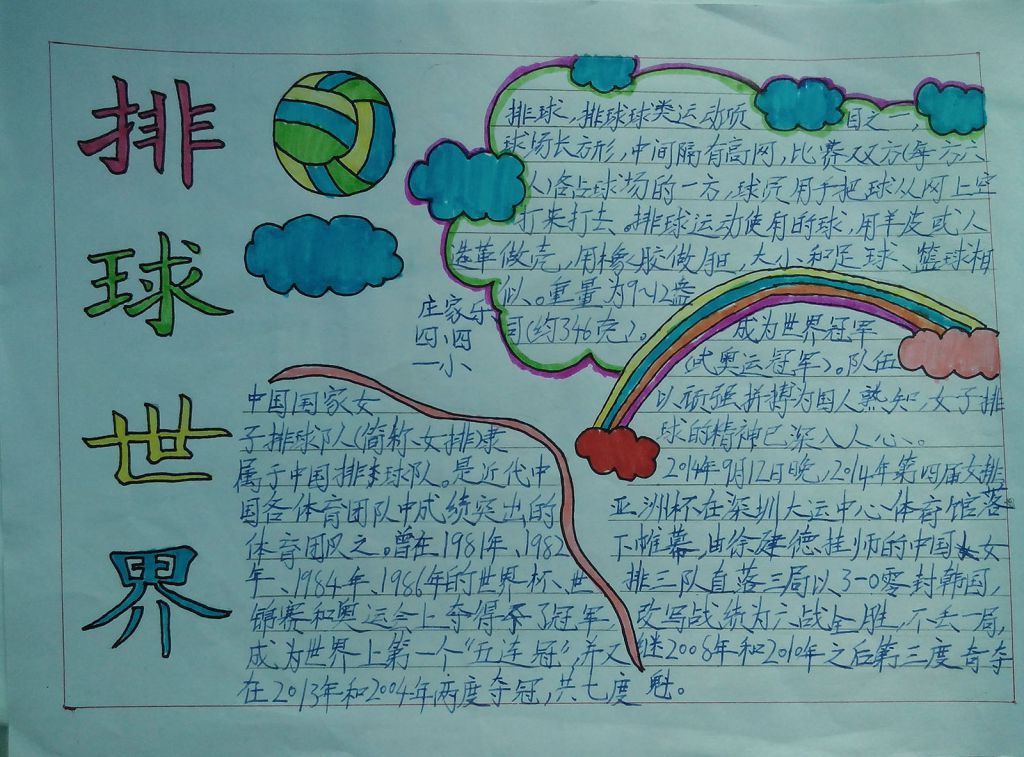 排球世界
排球，排球球类运动项目之一，
球场长方形，中间隔有高网，比赛双方(每方六
人)各占球场的一方，球员用手把球从网上空
打来打去。排球运动使用的球，用羊皮或人
造革做壳，用橡胶做胆，大小和足球、篮球相
似。重量为9~12盎
司(约346克)。
庄家乐
四、四
一小
中国国家女
子排球队(简称女排)隶
属于中国排球队。是近代中
国各体育团队中成绩突出的
体育团队之。曾在1981年、1982
年、1984年、1986年的世界杯、世
锦赛和奥运会上夺得了冠军，
成为世界上第一个“五连冠”，并又
在2013年和2004年两度夺冠，共七度
成为世界冠军
(武奥运冠军)。队伍
以顽强拼搏为国人熟知，女子排
球的精神已深入人心。
2014年9月12日晚，2014年第四届女排
亚洲杯在深圳大运中心体育馆落
下帷幕，由徐建德挂师的中国女
排三队直落三局以3-0零封韩国，
改写战绩为六战全胜，不丢一局，
继2008年和2010年之后第三度奇夺
魁。